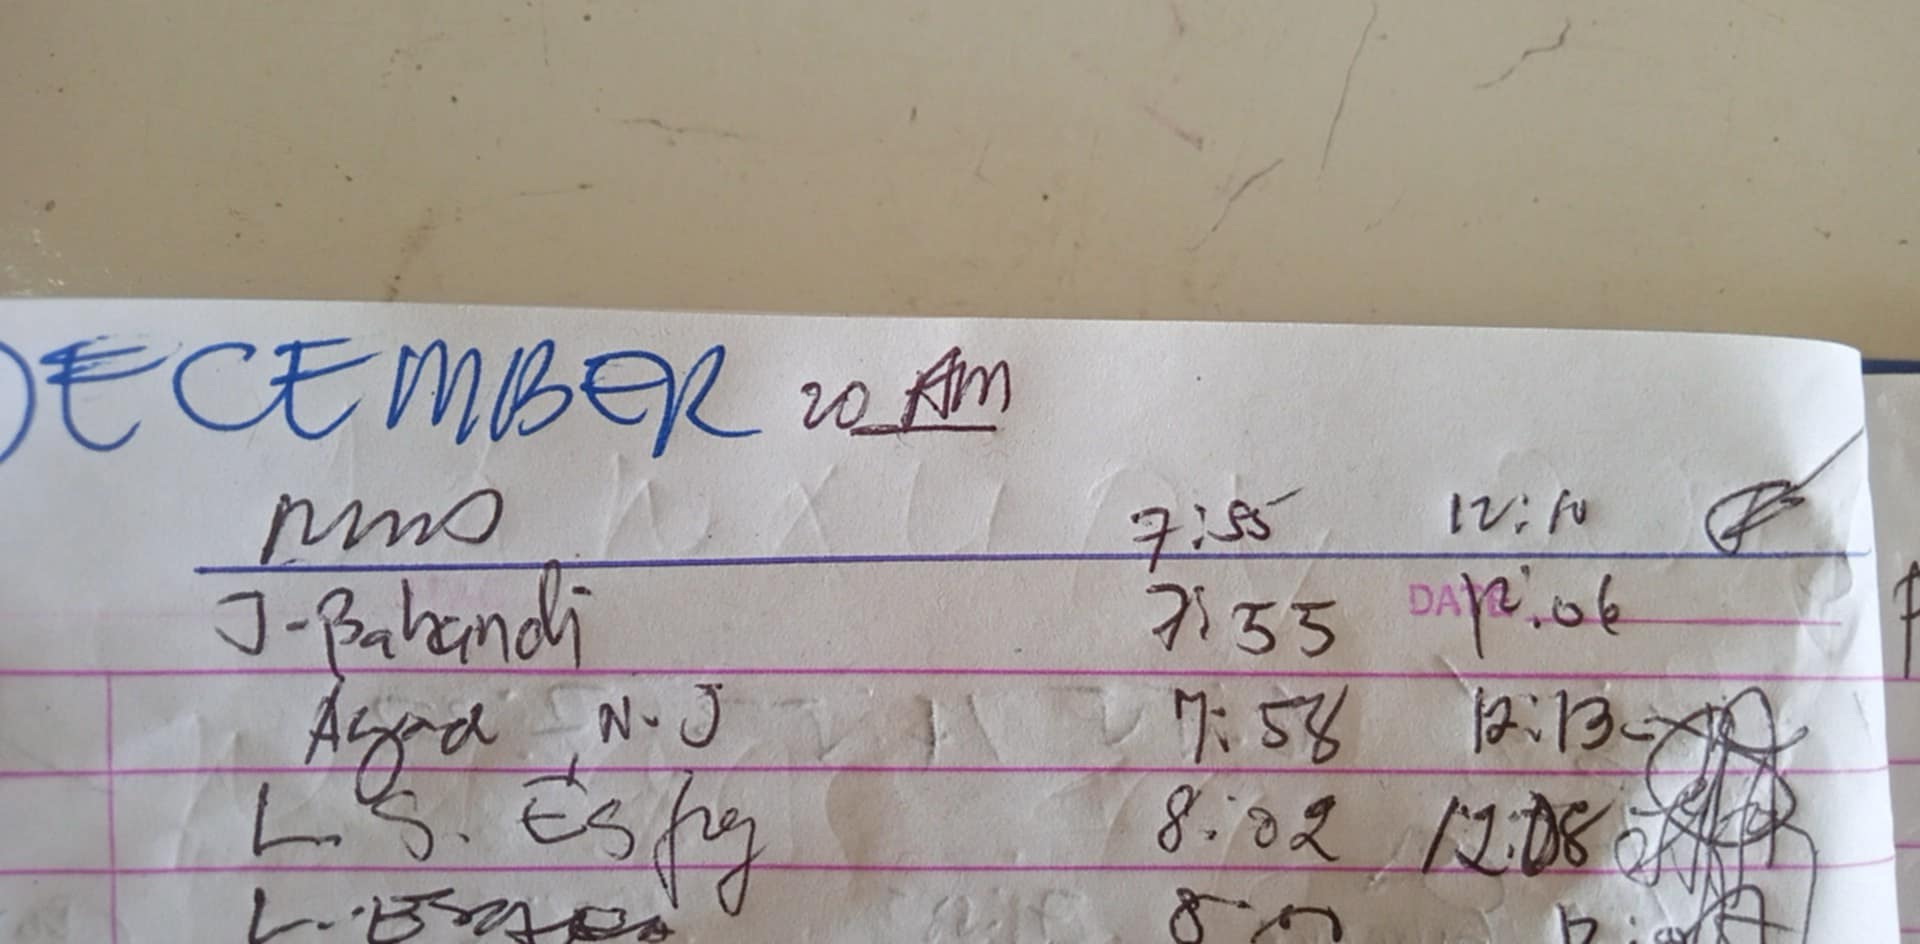 DECEMBER 20 AM
7:55 12:10
J-Bahandi 7:55 DATE 12:06
N.J 7:58 12:13
L. S. 8:02 12:08
L.